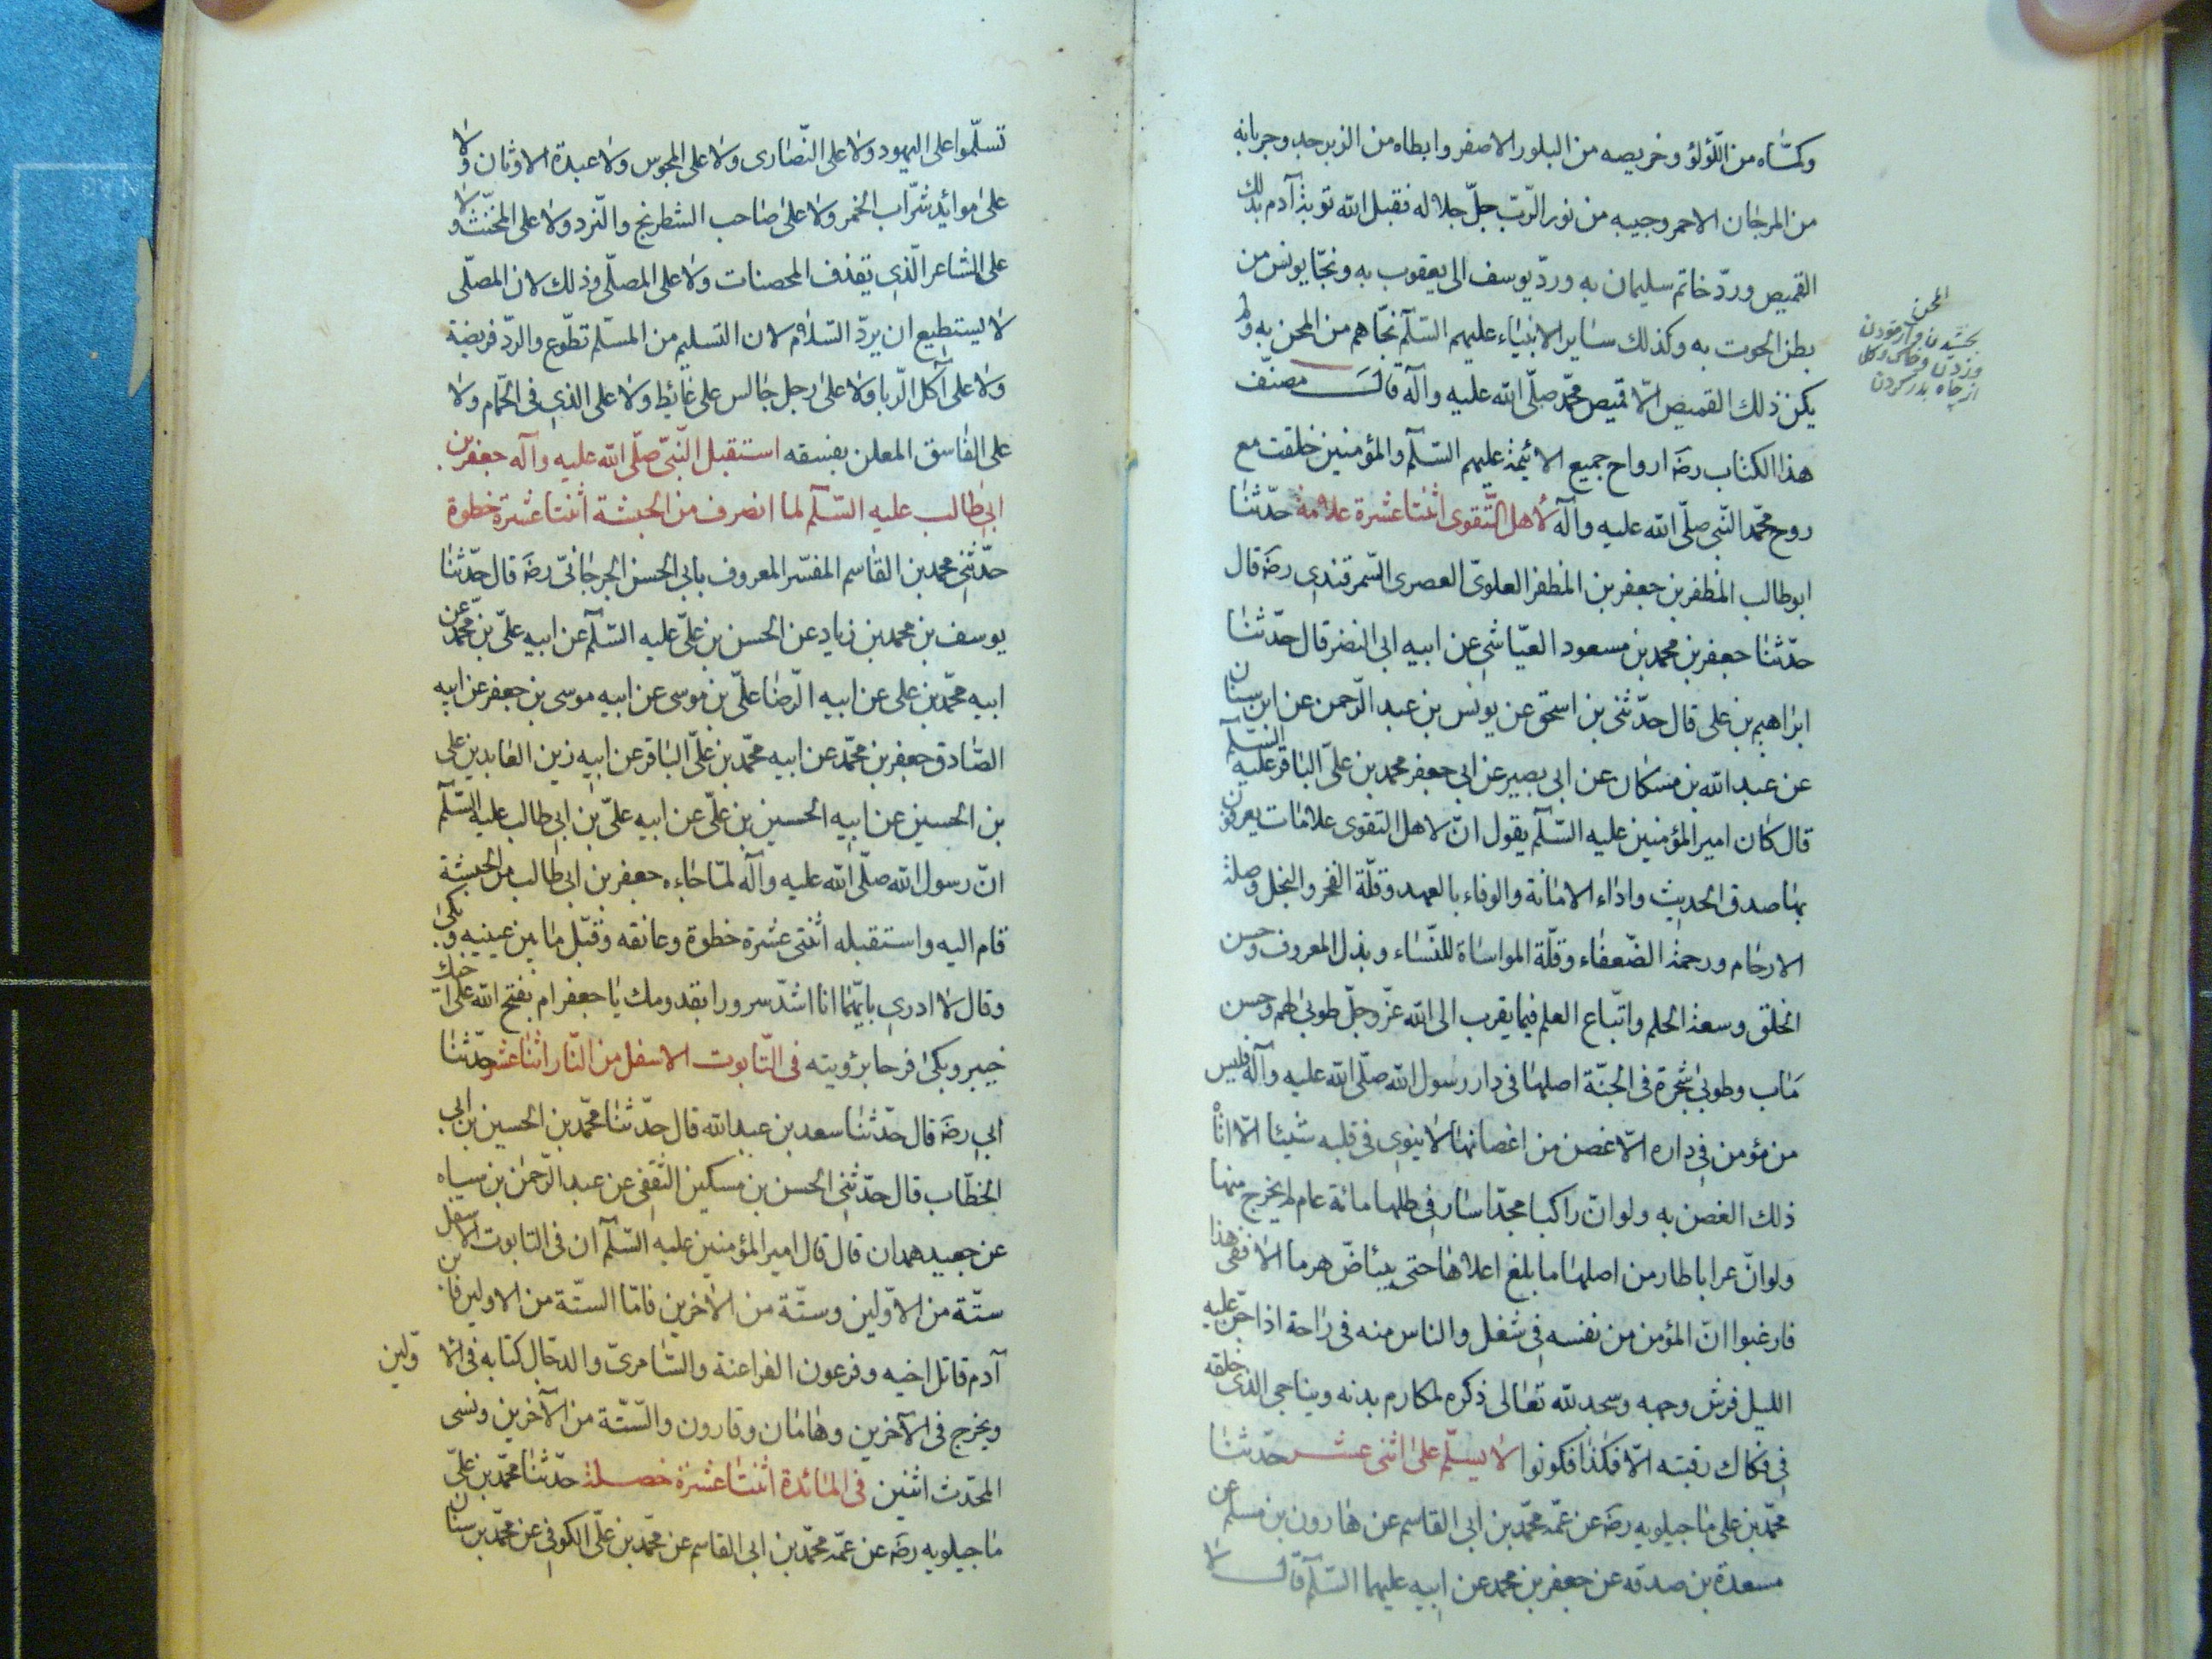 وكمّاه من اللّؤلؤ وخريصه من البلور الاصفر وابطاه من الزبرجد وجربانه
من المرجان الاحمر وجيبه من نور الرّبّ جلّ جلاله فقبل الله توبة آدم بذلك
القميص وردّ خاتم سليمان به وردّ يوسف الى يعقوب به ونجّا يونس من
بطن الحوت به وكذلك ساير الانبياء عليهم السّلم نجّاهم من المحن به ولم
يكن ذلك القميص الّا قميص محمّد صلّى الله عليه وآله قال مصنّف
هذا الكتاب رضه ارواح جميع الائمة عليهم السّلم والمؤمنين خلقت مع
روح محمّد النّبي صلّى الله عليه وآله لأهل التّقوى اثنتا عشرة علامة حدّثنا
ابو طالب المظفر بن جعفر بن المظفر العلويّ العصرى السّمرقندي رضه قال
حدّثنا جعفر بن محمد بن مسعود العيّاشي عن ابيه ابى النضر قال حدّثنا
ابراهيم بن على قال حدّثنى بن اسحق عن يونس بن عبد الرّحمن عن ابن سنان
عن عبد الله بن مسكان عن ابى بصير عن ابى جعفر محمد بن علىّ الباقر عليه السّلم
قال كان امير المؤمنين عليه السّلم يقول انّ لاهل التقوى علامات يعرفون
بها صدق الحديث واداء الامانة والوفاء بالعهد وقلّة الفخر والبخل وصلة
الارحام ورحمة الضّعفاء وقلّة المواساة للنّساء وبذل المعروف وحسن
الخلق وسعة الحلم واتّباع العلم فيما يقرب الى الله عزّ وجلّ طوبى لهم وحسن
مَاب وطوبى شجرة فى الجنّة اصلها فى دار رسول الله صلّى الله عليه وآله فليس
من مؤمن في داره الّا غصن من اغصانها لا ينوي فى قلبه شيئا الّا اتاه
ذلك الغصن به ولو انّ راكبا مجدّا سار في ظلها مائة عام لم يخرج منها
ولو انّ غرابا طار من اصلها ما بلغ اعلاها حتى يبياضّ هرما الا ففى هذا
فارغبوا انّ المؤمن من نفسه في شغل والناس منه فى راحة اذا جنّ عليه
الليل فرش وجهه وسجد لله تعالى ذكره لمكارم بدنه ويناجى الذى خلقه
في فكاك رقبته الّا فكذا فكونوا لا يسلّم على اثنى عشر حدّثنا
محمّد بن على ماجيلويه رضه عن عمّه محمّد بن ابى القاسم عن هارون بن مسلم عن
مسعدة بن صدقه عن جعفر بن محمد عن ابيه عليهما السّلم قال لا
المحن
از چاه بدر كردن
تسلّموا على اليهود ولا على النّصارى ولا على المجوس ولا عبدة الاوثان ولا
على موائد شرّاب الخمر ولا على صاحب الشطرنج والنّرد ولا على المخنّث ولا
على الشاعر الّذي يقذف المحصنات ولا على المصلّي وذلك لان المصلّى
لا يستطيع ان يردّ السّلام لان التسليم من المسلّم تطوّع والردّ فريضة
ولا على آكل الرّبا ولا على رجل جالس على غائط ولا على الذي فى الحمّام ولا
على الفاسق المعلن بفسقه استقبل النّبىّ صلّى الله عليه وآله جعفر بن
ابى طالب عليه السّلم لما انصرف من الحبشة اثنتا عشرة خطوة
حدّثني محمد بن القاسم المفسّر المعروف بابى الحسن الجرجانىّ رضه قال حدّثنا
يوسف بن محمد بن زياد عن الحسن بن علىّ عليه السّلم عن ابيه علىّ بن محمّد عن
ابيه محمّد بن على عن ابيه الرّضا علىّ بن موسى عن ابيه موسى بن جعفر عن ابيه
الصّادق جعفر بن محمّد عن ابيه محمّد بن علىّ الباقر عن ابيه زين العابدين على
بن الحسين عن ابيه الحسين بن علىّ عن ابيه علىّ بن ابي طالب عليه السّلم
انّ رسول الله صلّى الله عليه وآله لمّا جاءه جعفر بن ابى طالب من الحبشة
قام اليه واستقبله اثنتى عشرة خطوة وعانقه وقبّل ما بين عينيه وبكى
وقال لا ادري بايّهما انا اشدّ سرورا بقدومك يا جعفر ام بفتح الله على اخيك
خيبر وبكى فرحا برؤيته فى التّابوت الاسفل من النّار اثنا عشر حدّثنا
ابي رضه قال حدّثنا سعد بن عبد الله قال حدّثنا محمّد بن الحسين بن ابى
الخطّاب قال حدّثني الحسن بن مسكين الثّقفى عن عبد الرّحمن بن سياه
عن جعيد همدان قال قال امير المؤمنين عليه السّلم ان فى التابوت الاسفل
ستّة من الاوّلين وستّة من الاخرين فامّا الستّة من الاولين فابن
آدم قاتل اخيه وفرعون الفراعنة والسّامرىّ والدجّال كتابه فى الا ولين
ويخرج فى الآخرين وهامان وقارون والسّتّة من الآخرين ونسى
المحدّث اثنين فى المائدة اثنتا عشرة خصلة حدّثنا محمّد بن علىّ
ماجيلويه رضه عن عمّه محمّد بن ابى القاسم عن محمّد بن علىّ الكوفي عن محمّد بن سنان